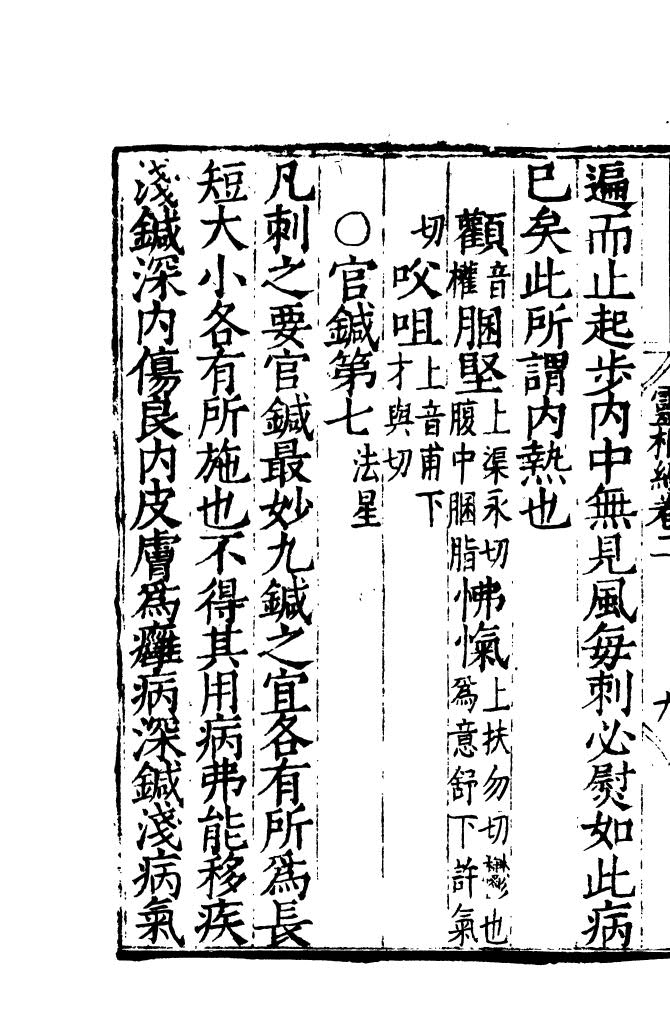 遍而止起步内中無見風每刺必熨如此病
已矣此所謂内熱也
顴音權䐃堅上渠永切腹中䐃脂怫愾上扶勿切也爲意舒下許氣
切㕮咀上音甫下才與切
〇官鍼第七法星
凡刺之要官鍼最妙九鍼之宜各有所爲長
短大小各有所施也不得其用病弗能移疾
淺鍼深内傷良内皮膚爲癰病深鍼淺病氣